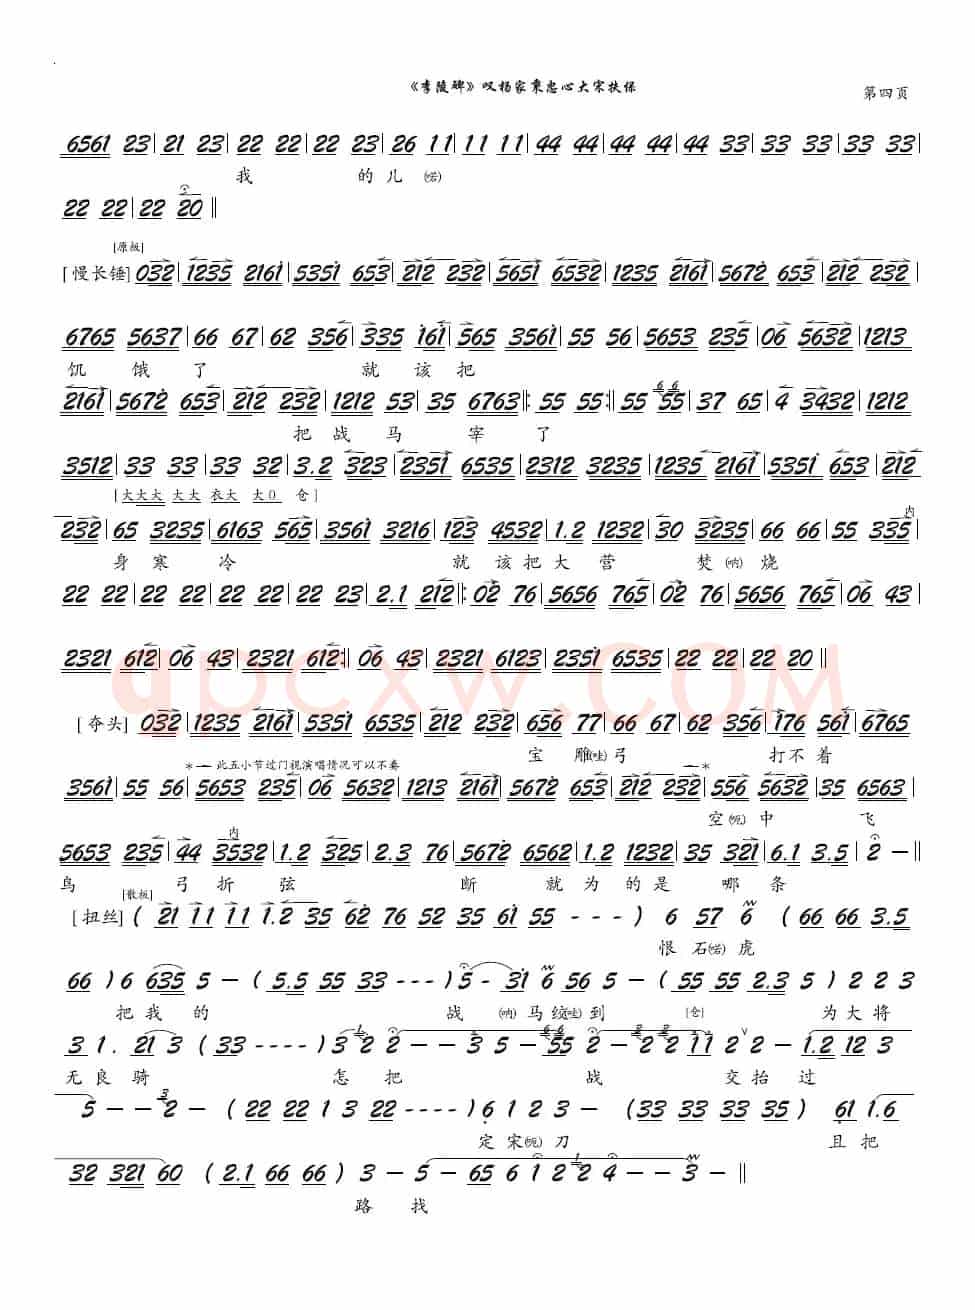 《李陵碑》叹杨家秉忠心大宋扶保
第四页
6561 23 | 21 23 | 22 22 | 22 23 | 26 11 | 11 11 | 44 44 | 44 44 | 44 33 | 33 33 | 33 33
我 的 儿 (喏)
22 22 | 22 20 ‖
[原板]
[慢长锤] 032 | 1235 2161 | 5351 653 | 212 232 | 5651 6532 | 1235 2161 | 5672 653 | 212 232
6765 5637 | 66 67 | 62 356 | 335 161 | 565 3561 | 55 56 | 5653 235 | 06 5632 | 1213
饥 饿 了 就 该 把
2161 | 5672 653 | 212 232 | 1212 53 | 35 6763 ‖: 55 55 :‖ 55 55 | 37 65 | 4 3432 | 1212
把 战 马 宰 了
3512 | 33 33 | 33 32 | 3.2 323 | 2351 6535 | 2312 3235 | 1235 2161 | 5351 653 | 212
[大大大 大大 衣大 大0 仓]
232 | 65 3235 | 6163 565 | 3561 3216 | 123 4532 | 1.2 1232 | 30 3235 | 66 66 | 55 335
内
身 寒 冷 就 该 把 大 营 焚 (呐) 烧
22 22 | 22 22 | 22 22 | 22 23 | 2.1 212 ‖: 02 76 | 5656 765 | 02 76 | 5656 765 | 06 43
2321 612 | 06 43 | 2321 612 :‖ 06 43 | 2321 6123 | 2351 6535 | 22 22 | 22 20 ‖
apcxw.COM
[夺头] 032 | 1235 2161 | 5351 6535 | 212 232 | 656 77 | 66 67 | 62 356 | 176 561 | 6765
宝 雕 (哇) 弓 打 不 着
*— 此五小节过门视演唱情况可以不奏 —*
3561 | 55 56 | 5653 235 | 06 5632 | 1213 2161 | 5672 653 | 212 232 | 556 5632 | 35 6563
空 (呃) 中 飞
5653 235 | 44 3532 | 1.2 325 | 2.3 76 | 5672 6562 | 1.2 1232 | 35 321 | 6.1 3.5 | 2 — ‖
内
鸟 弓 折 弦 断 就 为 的 是 哪 条
[散板]
[扭丝] ( 21 11 11 1.2 35 62 76 52 35 61 55 - - - ) 6 57 6 ( 66 66 3.5
恨 石 (喏) 虎
66 ) 6 635 5 — ( 5.5 55 33 - - - - ) 5 - 31 6 56 5 — ( 55 55 2.3 5 ) 2 2 3
把 我 的 战 (呐) 马 绞 (哇) 到 [仓] 为 大 将
3 1. 21 3 ( 33 - - - - ) 3 2 2 — — 3 5 — 55 2 — 2 2 11 2 2 — 1.2 12 3
无 良 骑 怎 把 战 交 抬 过
5 — — 2 — ( 22 22 1 3 22 - - - - ) 6 1 2 3 — ( 33 33 33 35 ) 61 1.6
定 宋 (呃) 刀 且 把
32 321 60 ( 2.1 66 66 ) 3 — 5 — 65 6 1 2 2 4 — — 3 — ‖
路 找